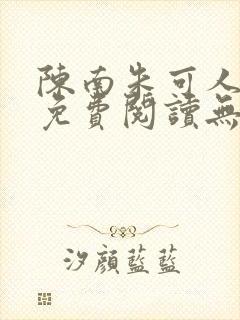 陳南朱可人
免費閱讀無
汐顏藍藍